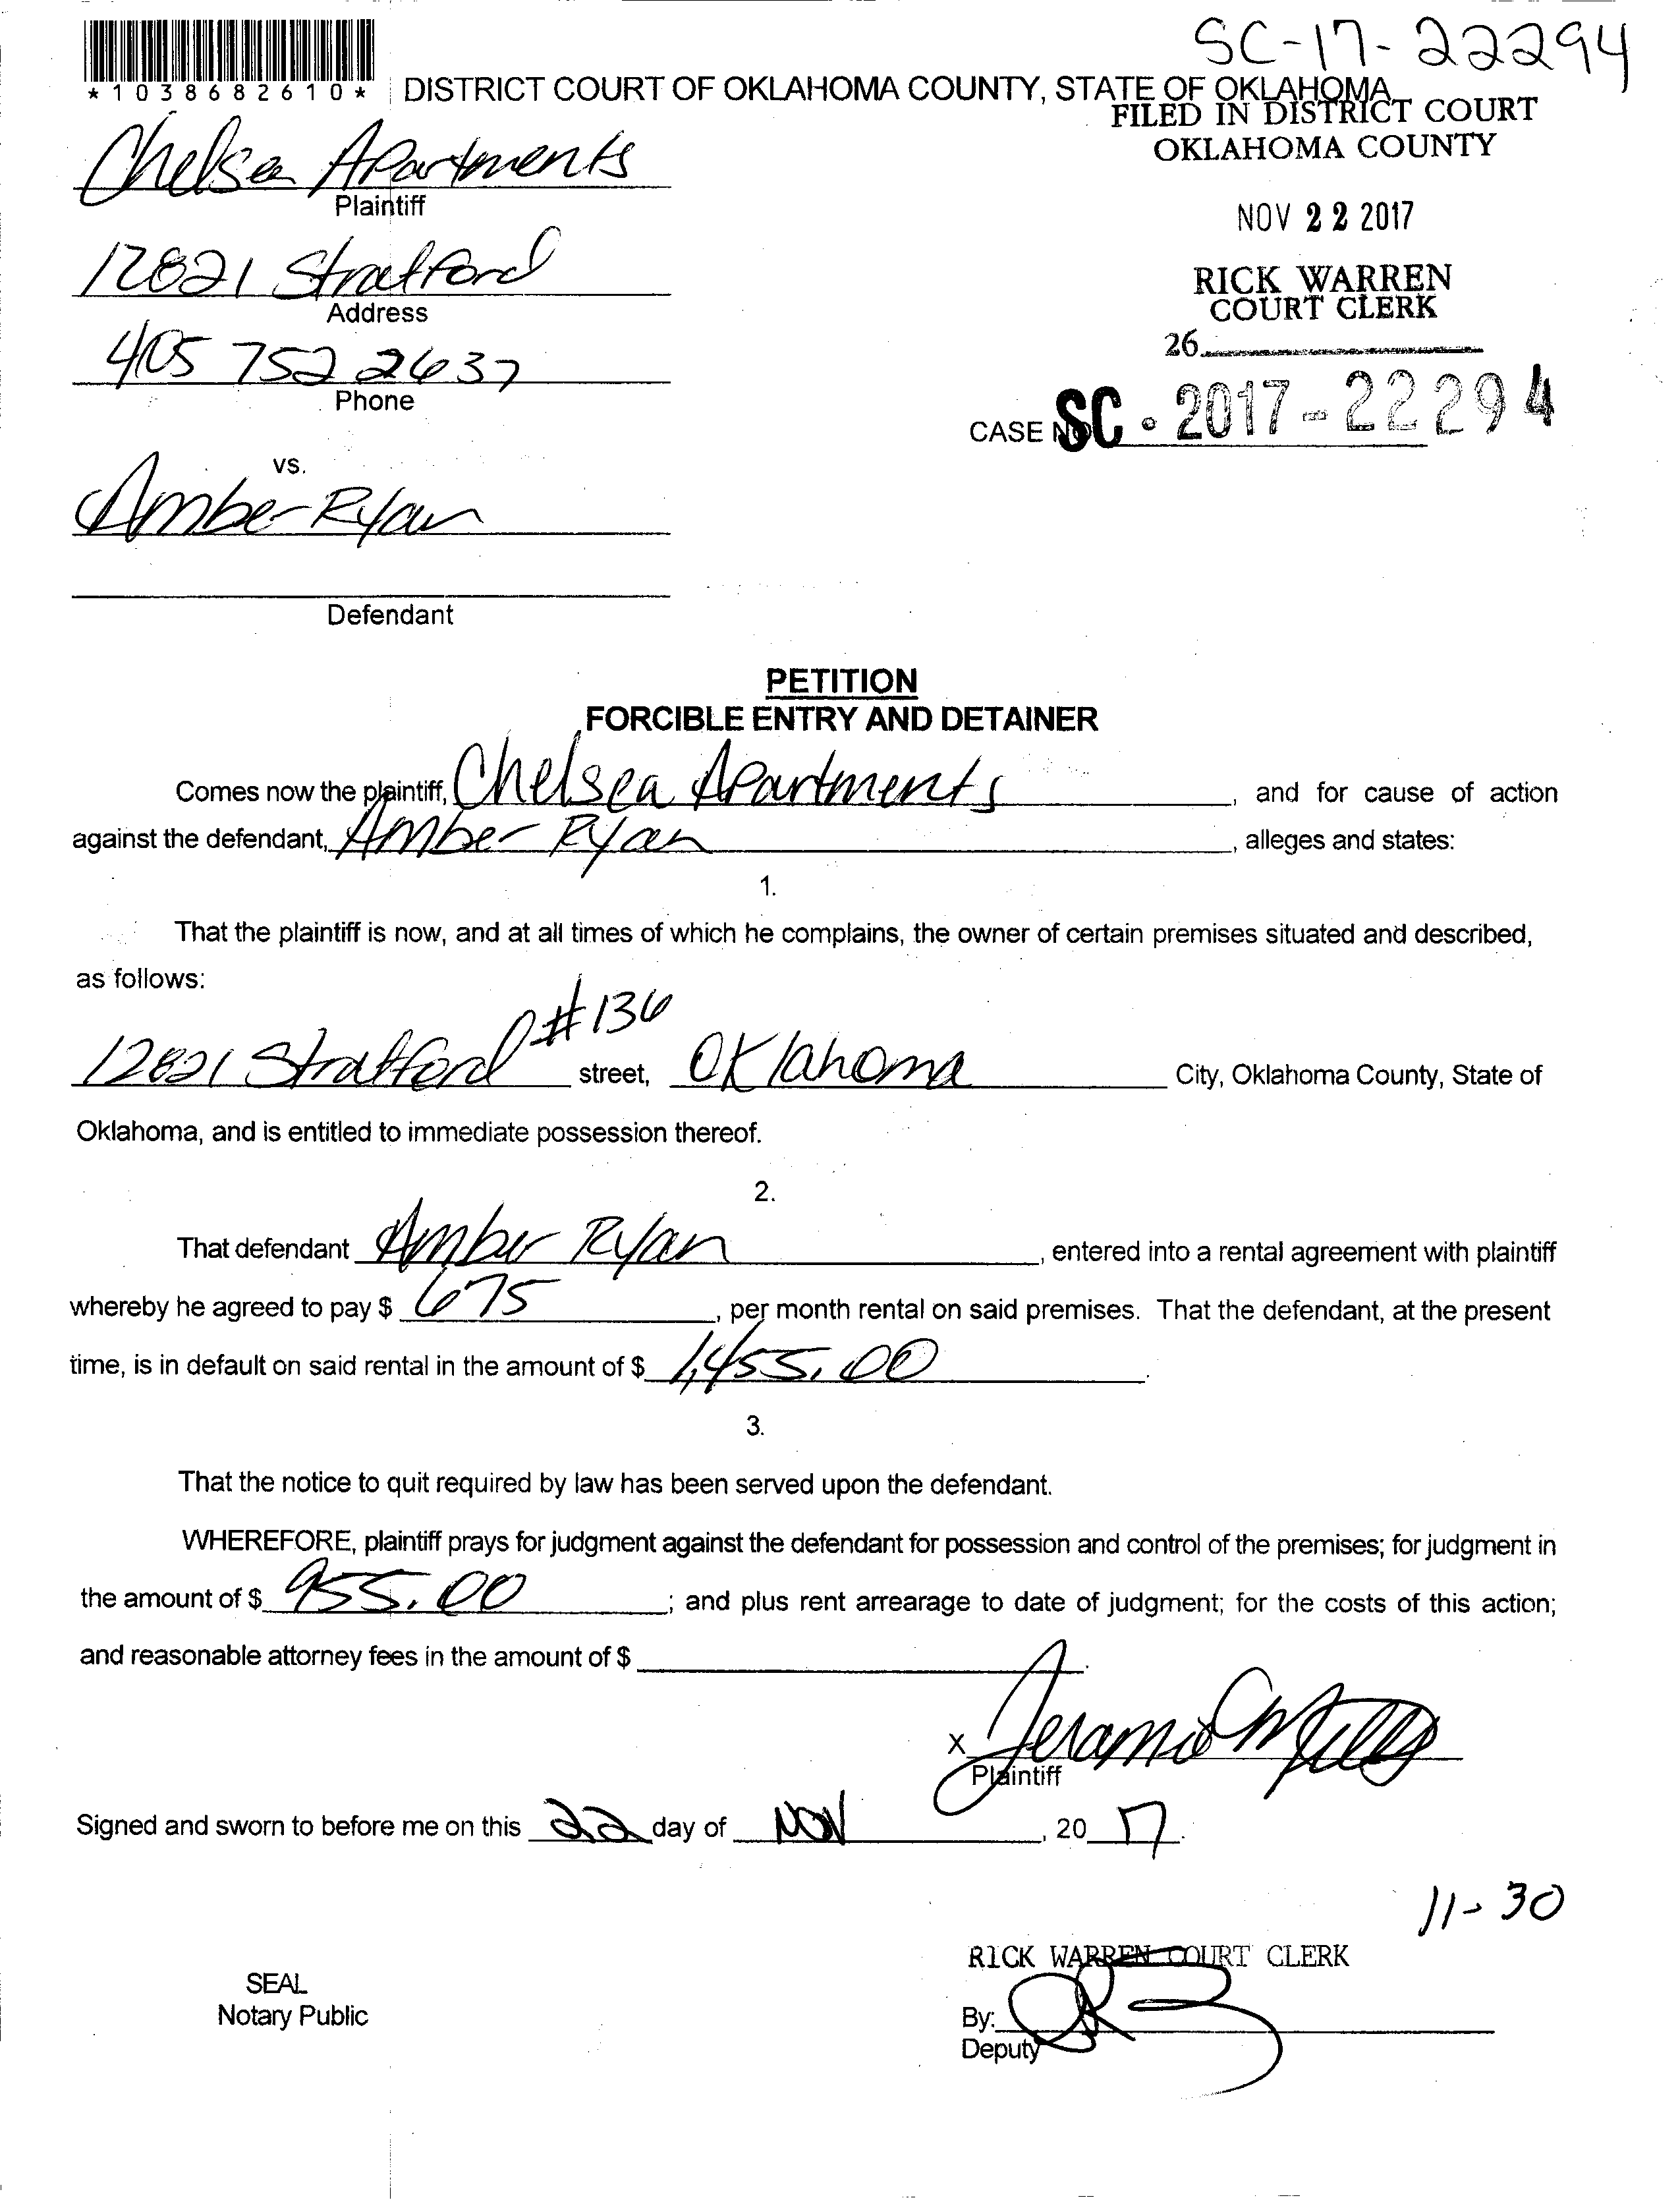 SC-17-22294
*1038682610*
DISTRICT COURT OF OKLAHOMA COUNTY, STATE OF OKLAHOMA
FILED IN DISTRICT COURT
OKLAHOMA COUNTY
Chelsea Apartments
Plaintiff
NOV 22 2017
12821 Stratford
Address
RICK WARREN
COURT CLERK
405 752 2637
Phone
26
CASE NO. SC-2017-22294
vs.
Amber Ryan
Defendant
PETITION
FORCIBLE ENTRY AND DETAINER
Comes now the plaintiff, Chelsea Apartments, and for cause of action
against the defendant, Amber Ryan, alleges and states:
1.
That the plaintiff is now, and at all times of which he complains, the owner of certain premises situated and described,
as follows:
12821 Stratford #136 street, Oklahoma City, Oklahoma County, State of
Oklahoma, and is entitled to immediate possession thereof.
2.
That defendant Amber Ryan, entered into a rental agreement with plaintiff
whereby he agreed to pay $ 675, per month rental on said premises. That the defendant, at the present
time, is in default on said rental in the amount of $ 1,455.00.
3.
That the notice to quit required by law has been served upon the defendant.
WHEREFORE, plaintiff prays for judgment against the defendant for possession and control of the premises; for judgment in
the amount of $ 955.00; and plus rent arrearage to date of judgment; for the costs of this action;
and reasonable attorney fees in the amount of $
X
Plaintiff
Signed and sworn to before me on this 22 day of NOV, 20 17.
11-30
RICK WARREN COURT CLERK
SEAL
Notary Public
By:
Deputy